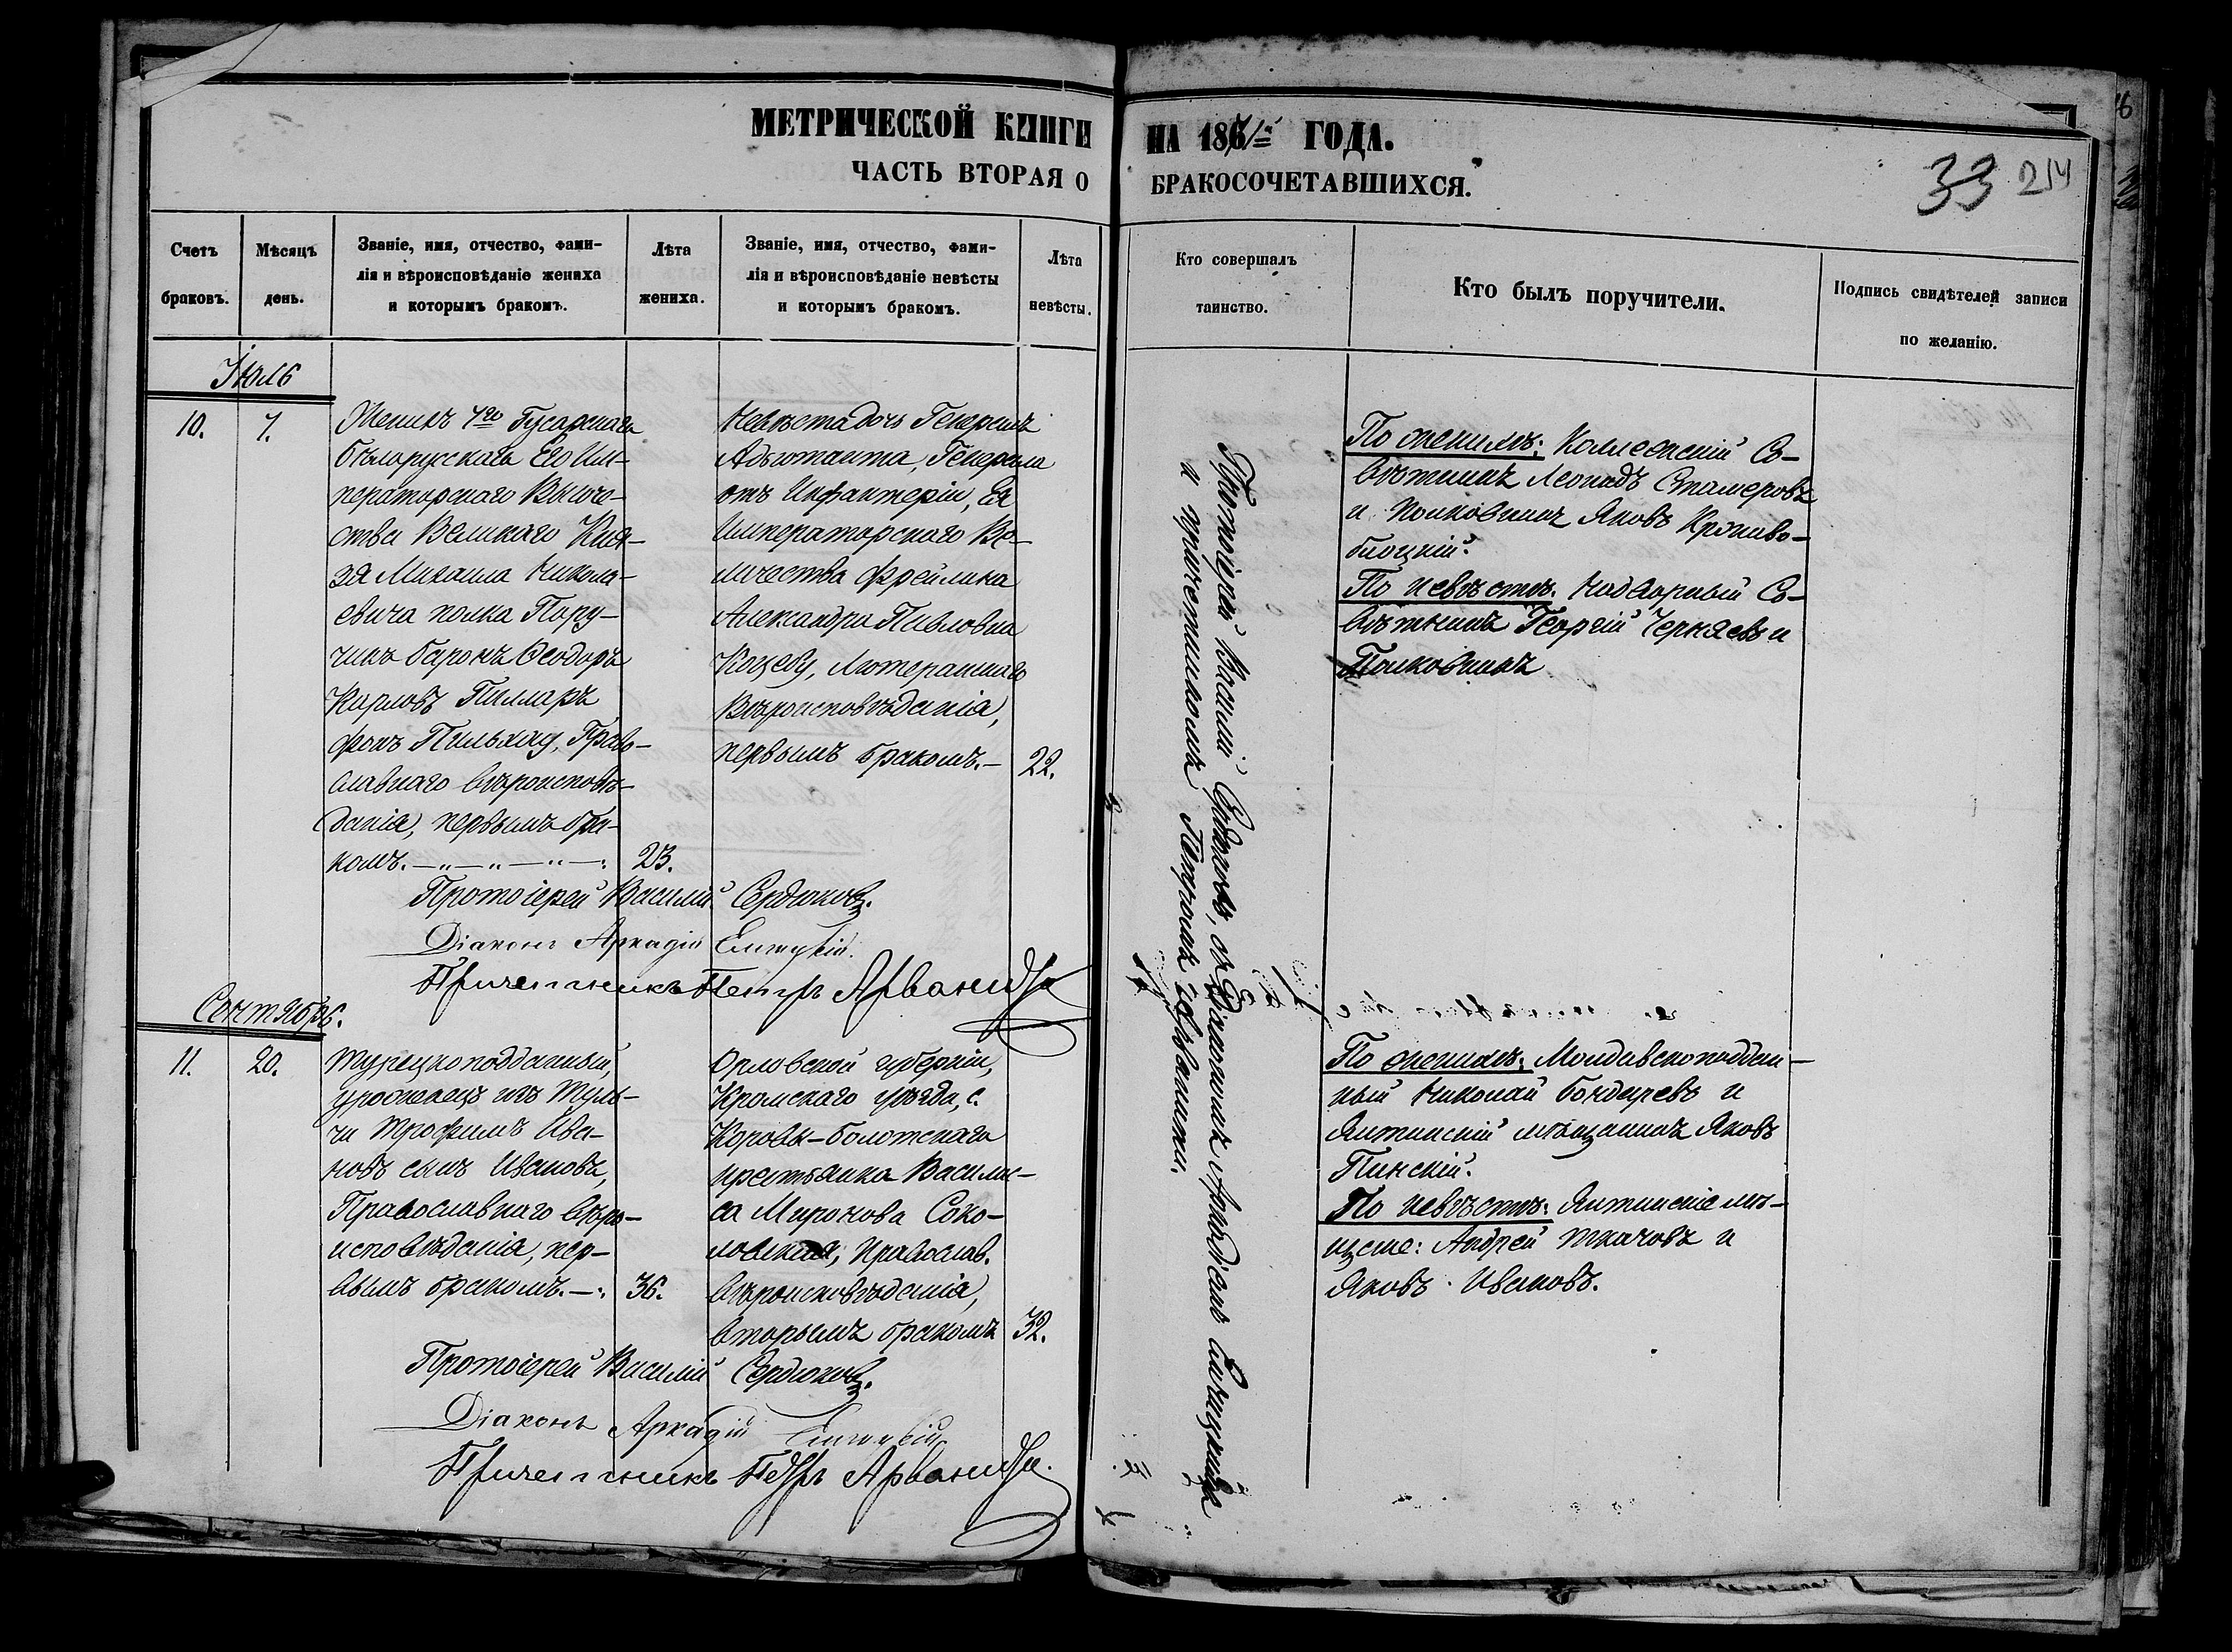 МЕТРИЧЕСКОЙ КНИГИ НА 1871й ГОДА.
ЧАСТЬ ВТОРАЯ О БРАКОСОЧЕТАВШИХСЯ.
33 214
Счетъ браковъ.
Мѣсяцъ день.
Званіе, имя, отчество, фами-
лія и вѣроисповѣданіе жениха
и которымъ бракомъ.
Лѣта
жениха.
Званіе, имя, отчество, фами-
лія и вѣроисповѣданіе невѣсты
и которымъ бракомъ.
Лѣта
невѣсты.
Кто совершалъ
таинство.
Кто былъ поручители.
Подпись свидѣтелей записи
по желанію.
Іюль
10.
7.
Женихъ 7го Гусарскаго
Бѣлорусскаго Его Им-
ператорскаго Высоче-
ства Великаго Кня-
зя Михаила Никола-
евича полка Пору-
чикъ Баронъ Ѳеодоръ
Карловъ Пилларъ
фонъ Пильхау, Право-
славнаго вѣроисповѣ-
данія, первымъ бра-
комъ.
23.
Невѣста дочь Генералъ
Адъютанта, Генерала
отъ Инфантеріи, Ея
Императорскаго Ве-
личества фрейлина
Александра Павловна
Коцебу, Лютеранскаго
Вѣроисповѣданія,
первымъ бракомъ.—
22.
Протоіерей Василій Сердюковъ, съ Діакономъ Аркадіемъ
и причетникомъ Петромъ
По женихѣ: Коллежскій Со-
вѣтникъ Леонидъ
и Полковникъ Яковъ Кропиво-
По невѣстѣ: Надворный Со-
вѣтникъ Георгій Черняевъ и
Полковникъ
Протоіерей Василій Сердюковъ.
Діаконъ Аркадій
Причетникъ Петръ
Сентябрь.
11.
20.
Турецкоподданный,
уроженецъ изъ Туль-
чи Трофимъ Ива-
новъ сынъ Ивановъ,
Православнаго вѣро-
исповѣданія, пер-
вымъ бракомъ.—
36.
Орловской губерніи,
Кромскаго уѣзда, с.
Коровье-Болотскаго
крестьянка Васили-
са Миронова Соко-
ловская, Православ.
вѣроисповѣданія,
вторымъ бракомъ
32.
По женихѣ: Молдавскоподдан-
ный Николай Бондаревъ и
Ялтинскій мѣщанинъ Яковъ
Пинскій.
По невѣстѣ: Ялтинскіе мѣ-
щане: Андрей Ткачовъ и
Яковъ Ивановъ.
Протоіерей Василій Сердюковъ.
Діаконъ Аркадій
Причетникъ Петръ